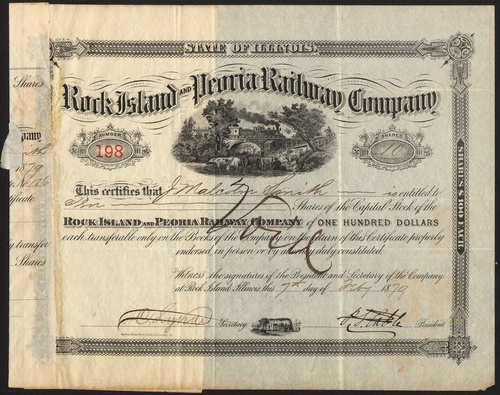 STATE OF ILLINOIS.
Rock Island AND Peoria Railway Company
NUMBER
198
SHARES
10
EACH $100 SHARES
This certifies that J Malcolm Smith is entitled to
Ten Shares of the Capital Stock of the
ROCK ISLAND AND PEORIA RAILWAY COMPANY of ONE HUNDRED DOLLARS
each transferable only on the Books of the Company on the return of this Certificate properly
endorsed, in person or by attorney duly constituted.
Witness the signatures of the President and Secretary of the Company
at Rock Island Illinois this 7th day of Feby 1879
Secretary
President
Void
Shares
pany
Smith
1879
tificate
transfer
Shares